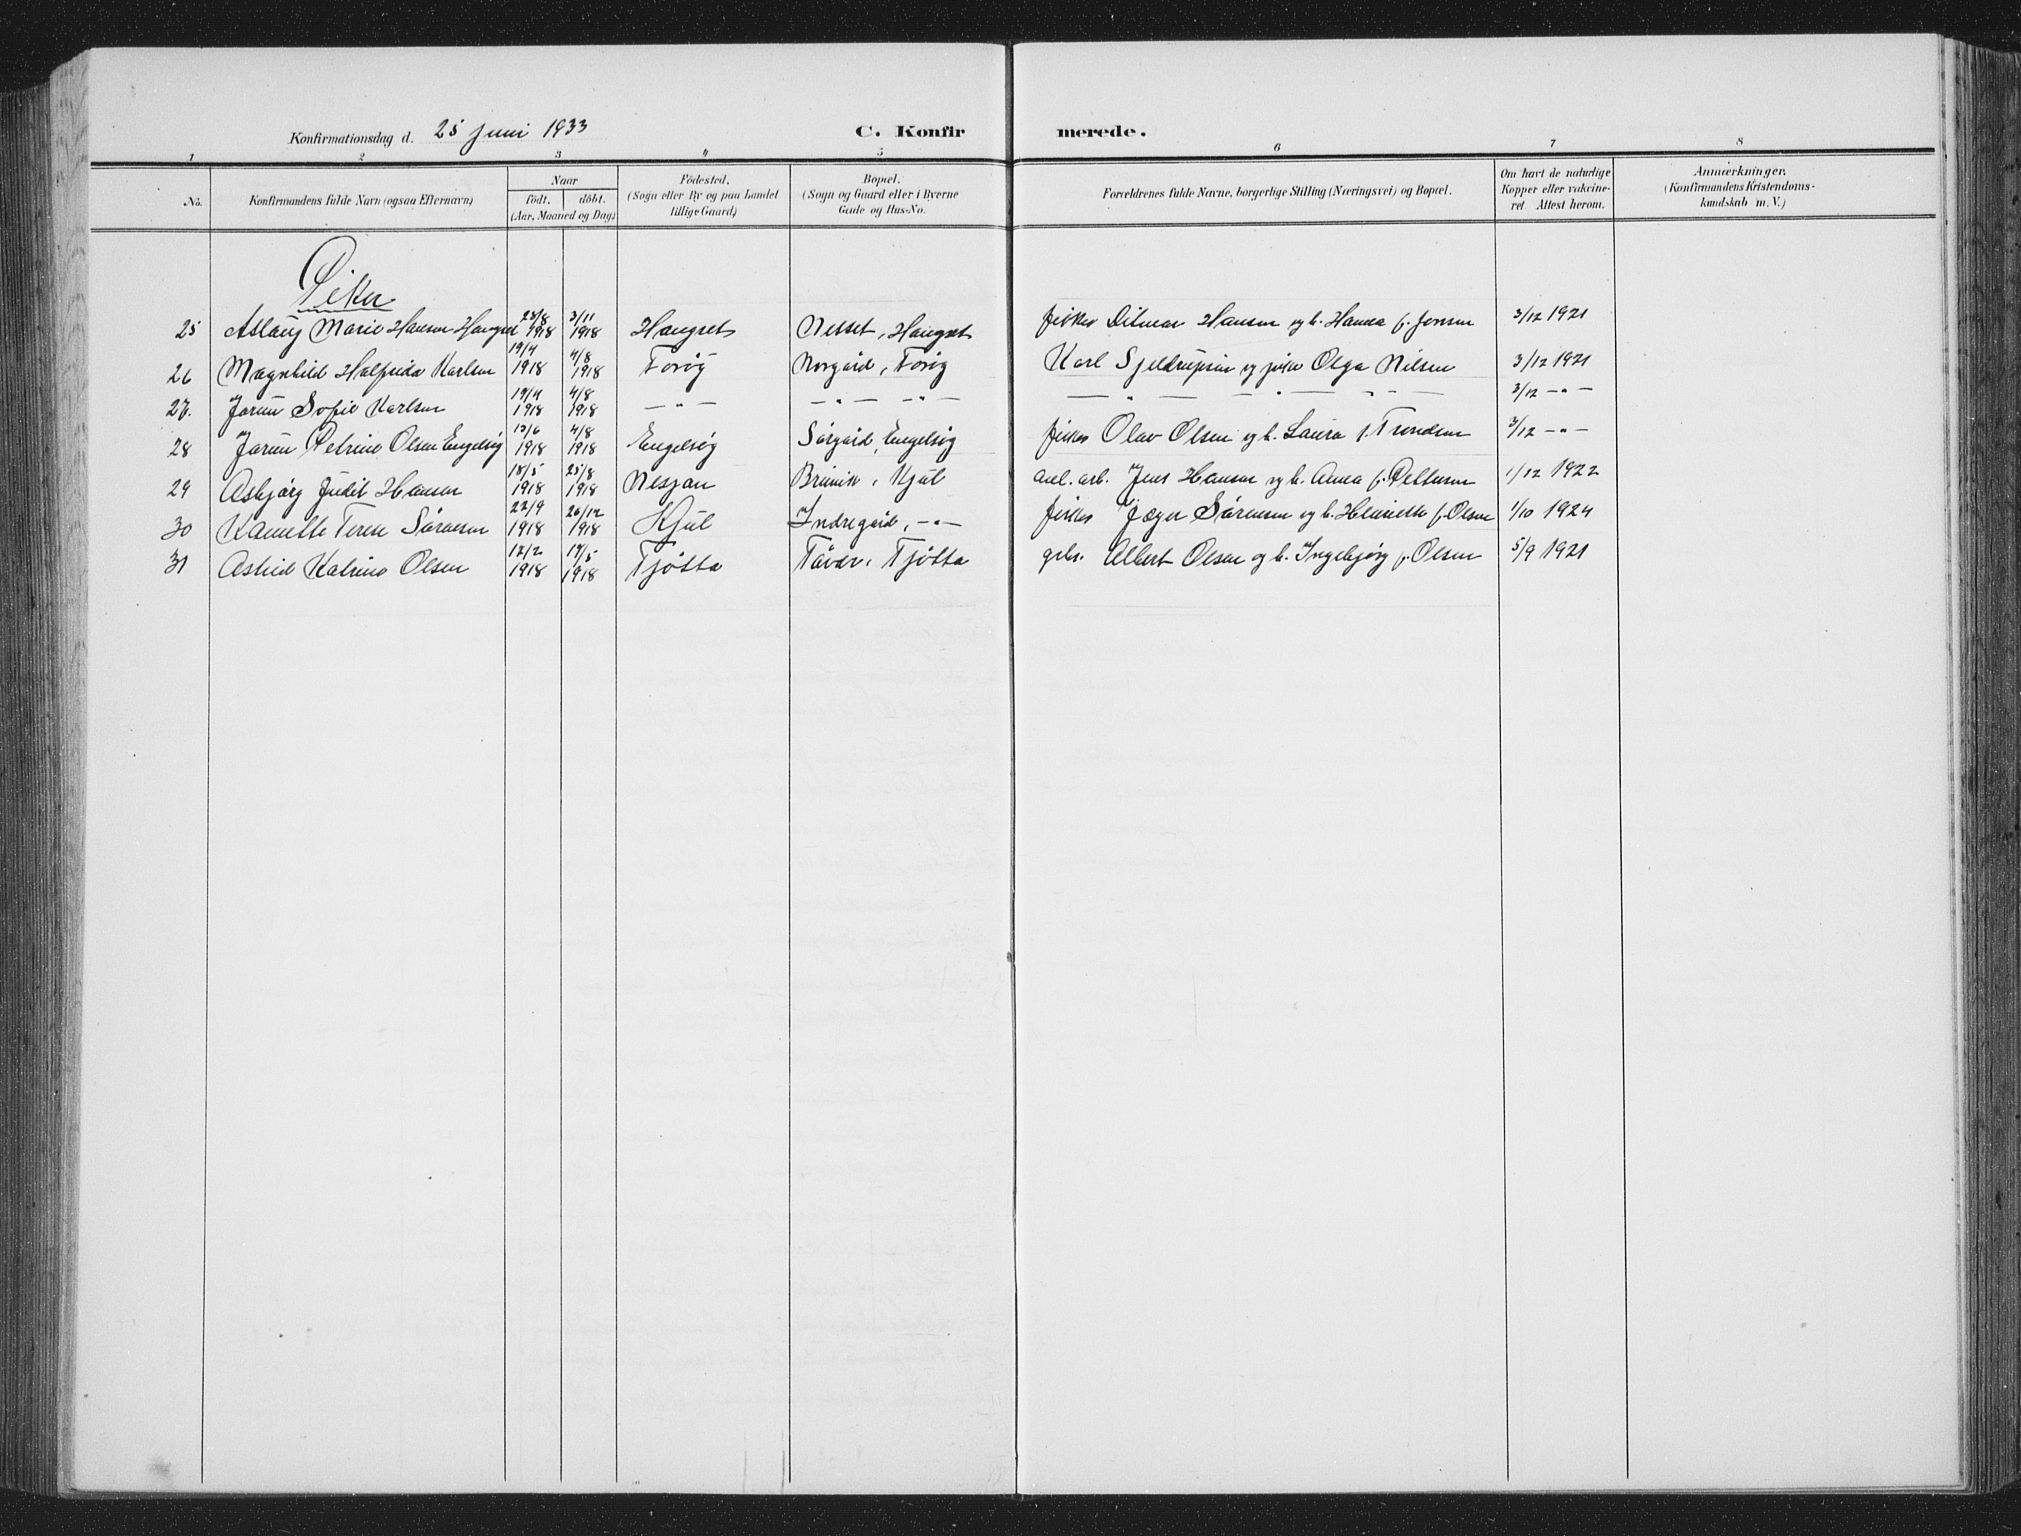 Konfirmationsdag d. 25 Juni 1933 C. Konfirmerede.
1 2 3 4 5 6 7 8
No. Konfirmandens fulde Navn (ogsaa Efternavn) Naar födt. döbt. (Aar, Maaned og Dag) Födested. (Sogn eller By og paa Landet tillige Gaard) Bopæl. (Sogn og Gaard eller i Byerne Gade og Hus-No. Forældrenes fulde Navne, borgerlige Stilling (Næringsvei) og Bopæl. Om havt de naturlige Kopper eller vakcineret Attest herom. Anmærkninger. (Konfirmandens Kristendomskundskab m. V.)
Piker
25 Aslaug Marie Hansen Haugset 23/8 1918 3/11 1918 Haugset Nesset, Haugset fisker Ditmar Hansen og h. Hanna f. Jensen 3/12 1921
26 Magnhild Halfrida Karlsen 19/4 1918 4/8 1918 Forøy Norgård, Forøy Karl Sjeldrupsen og pike Olga Nilsen 3/12 1921
27. Jorun Sofie Karlsen 19/4 1918 4/8 1918 — " — — " — — " — — " — " — " — 3/12 — " —
28 Jorun Petrine Olsen Engelsøy 13/6 1918 4/8 1918 Engelsøy Sørgård, Engelsøy fisker Olav Olsen og h. Laura f. Trondsen 3/12 — " —
29 Asbjørg Judit Hansen 18/5 1918 25/8 1918 Nesjan Brunvik, Hjul anl. arb. Jens Hansen og h. Anna f. Pettersen 1/12 1922
30 Kamilla Terese Sørensen 22/9 1918 26/12 1918 Hjul Indregård, — " — fisker Jæger Sørensen og h. Henriette f. Olsen 1/10 1924
31 Astrid Katrine Olsen 12/2 1918 19/5 1918 Tjøtta Tåvær, Tjøtta grbr. Albert Olsen og h. Ingebjørg f. Olsen 5/9 1921